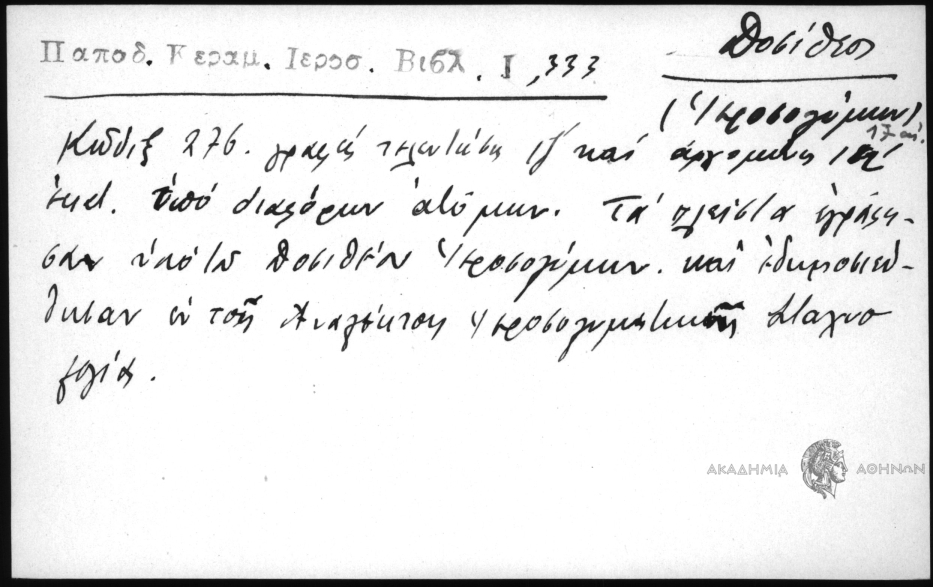 Παποδ. Κεραμ. Ιεροσ. Βιβλ. I, 333
Δοσίθεος
(Ἱεροσολύμων)
17 αἰ.
Κώδιξ 276. γραφεὶς τελευτώσης ιζ΄ καὶ ἀρχομένης ιη΄
ἑκατ. ὑπὸ διαφόρων ἀτόμων. Τὰ πλεῖστα ἐγράφη-
σαν ὑπὸ τοῦ Δοσιθέου Ἱεροσολύμων. καὶ ἐδημοσιεύ-
θησαν ἐν τοῖς Ἀναλέκτοις Ἱεροσολυμιτικῆς Σταχυο
λογίας.
ΑΚΑΔΗΜΙΑ ΑΘΗΝΩΝ